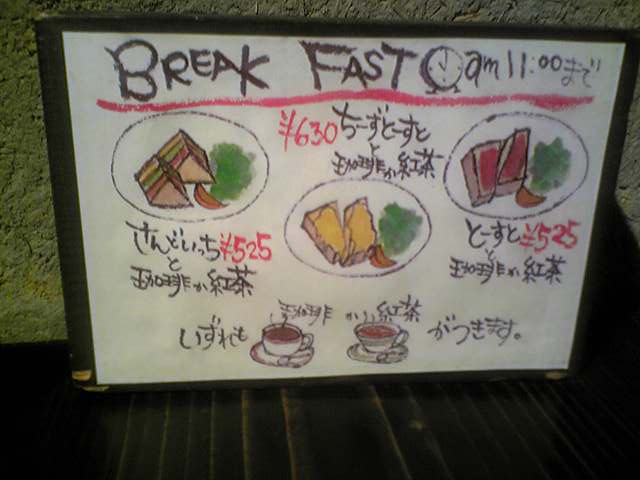 BREAK FAST am 11:00まで
¥630 ちーずとーすと
と
珈琲か紅茶
さんどいっち ¥525
と
珈琲か紅茶
とーすと ¥525
と
珈琲か紅茶
いずれも 珈琲 か 紅茶 がつきます。